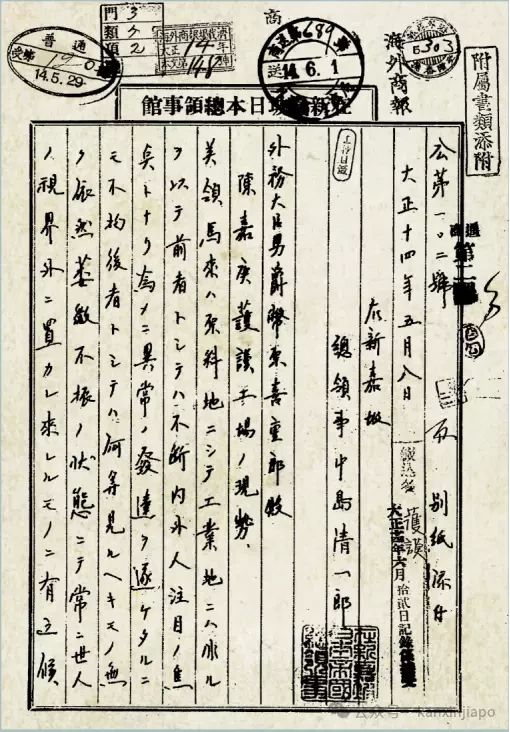 附屬書類添附
海外商報
5303
商
第689號
14.6.1
門 3
類 5
項 2
普通
14.5.29
在新嘉坡日本總領事館
公第一〇二號
別紙添付
大正十四年五月八日
護謨
大正十四年六月拾貳日記錄係接受
在新嘉坡
總領事中島清一郎
外務大臣男爵幣原喜重郎殿
陳嘉庚護謨工場ノ現勢
英領馬來ハ原料地ニシテ工業地ニハ非ル
ヲ以テ前者トシテハ不断内外人注目ノ焦
点トナリ為メニ異常ノ發達ヲ遂ケタルニ
モ不拘後者トシテハ何等見ルヘキモノ無
ク依然萎靡不振ノ状態ニテ常ニ世人
ノ視界外ニ置カレ来レルモノニ有之候
公众号 · kanxinjiapo